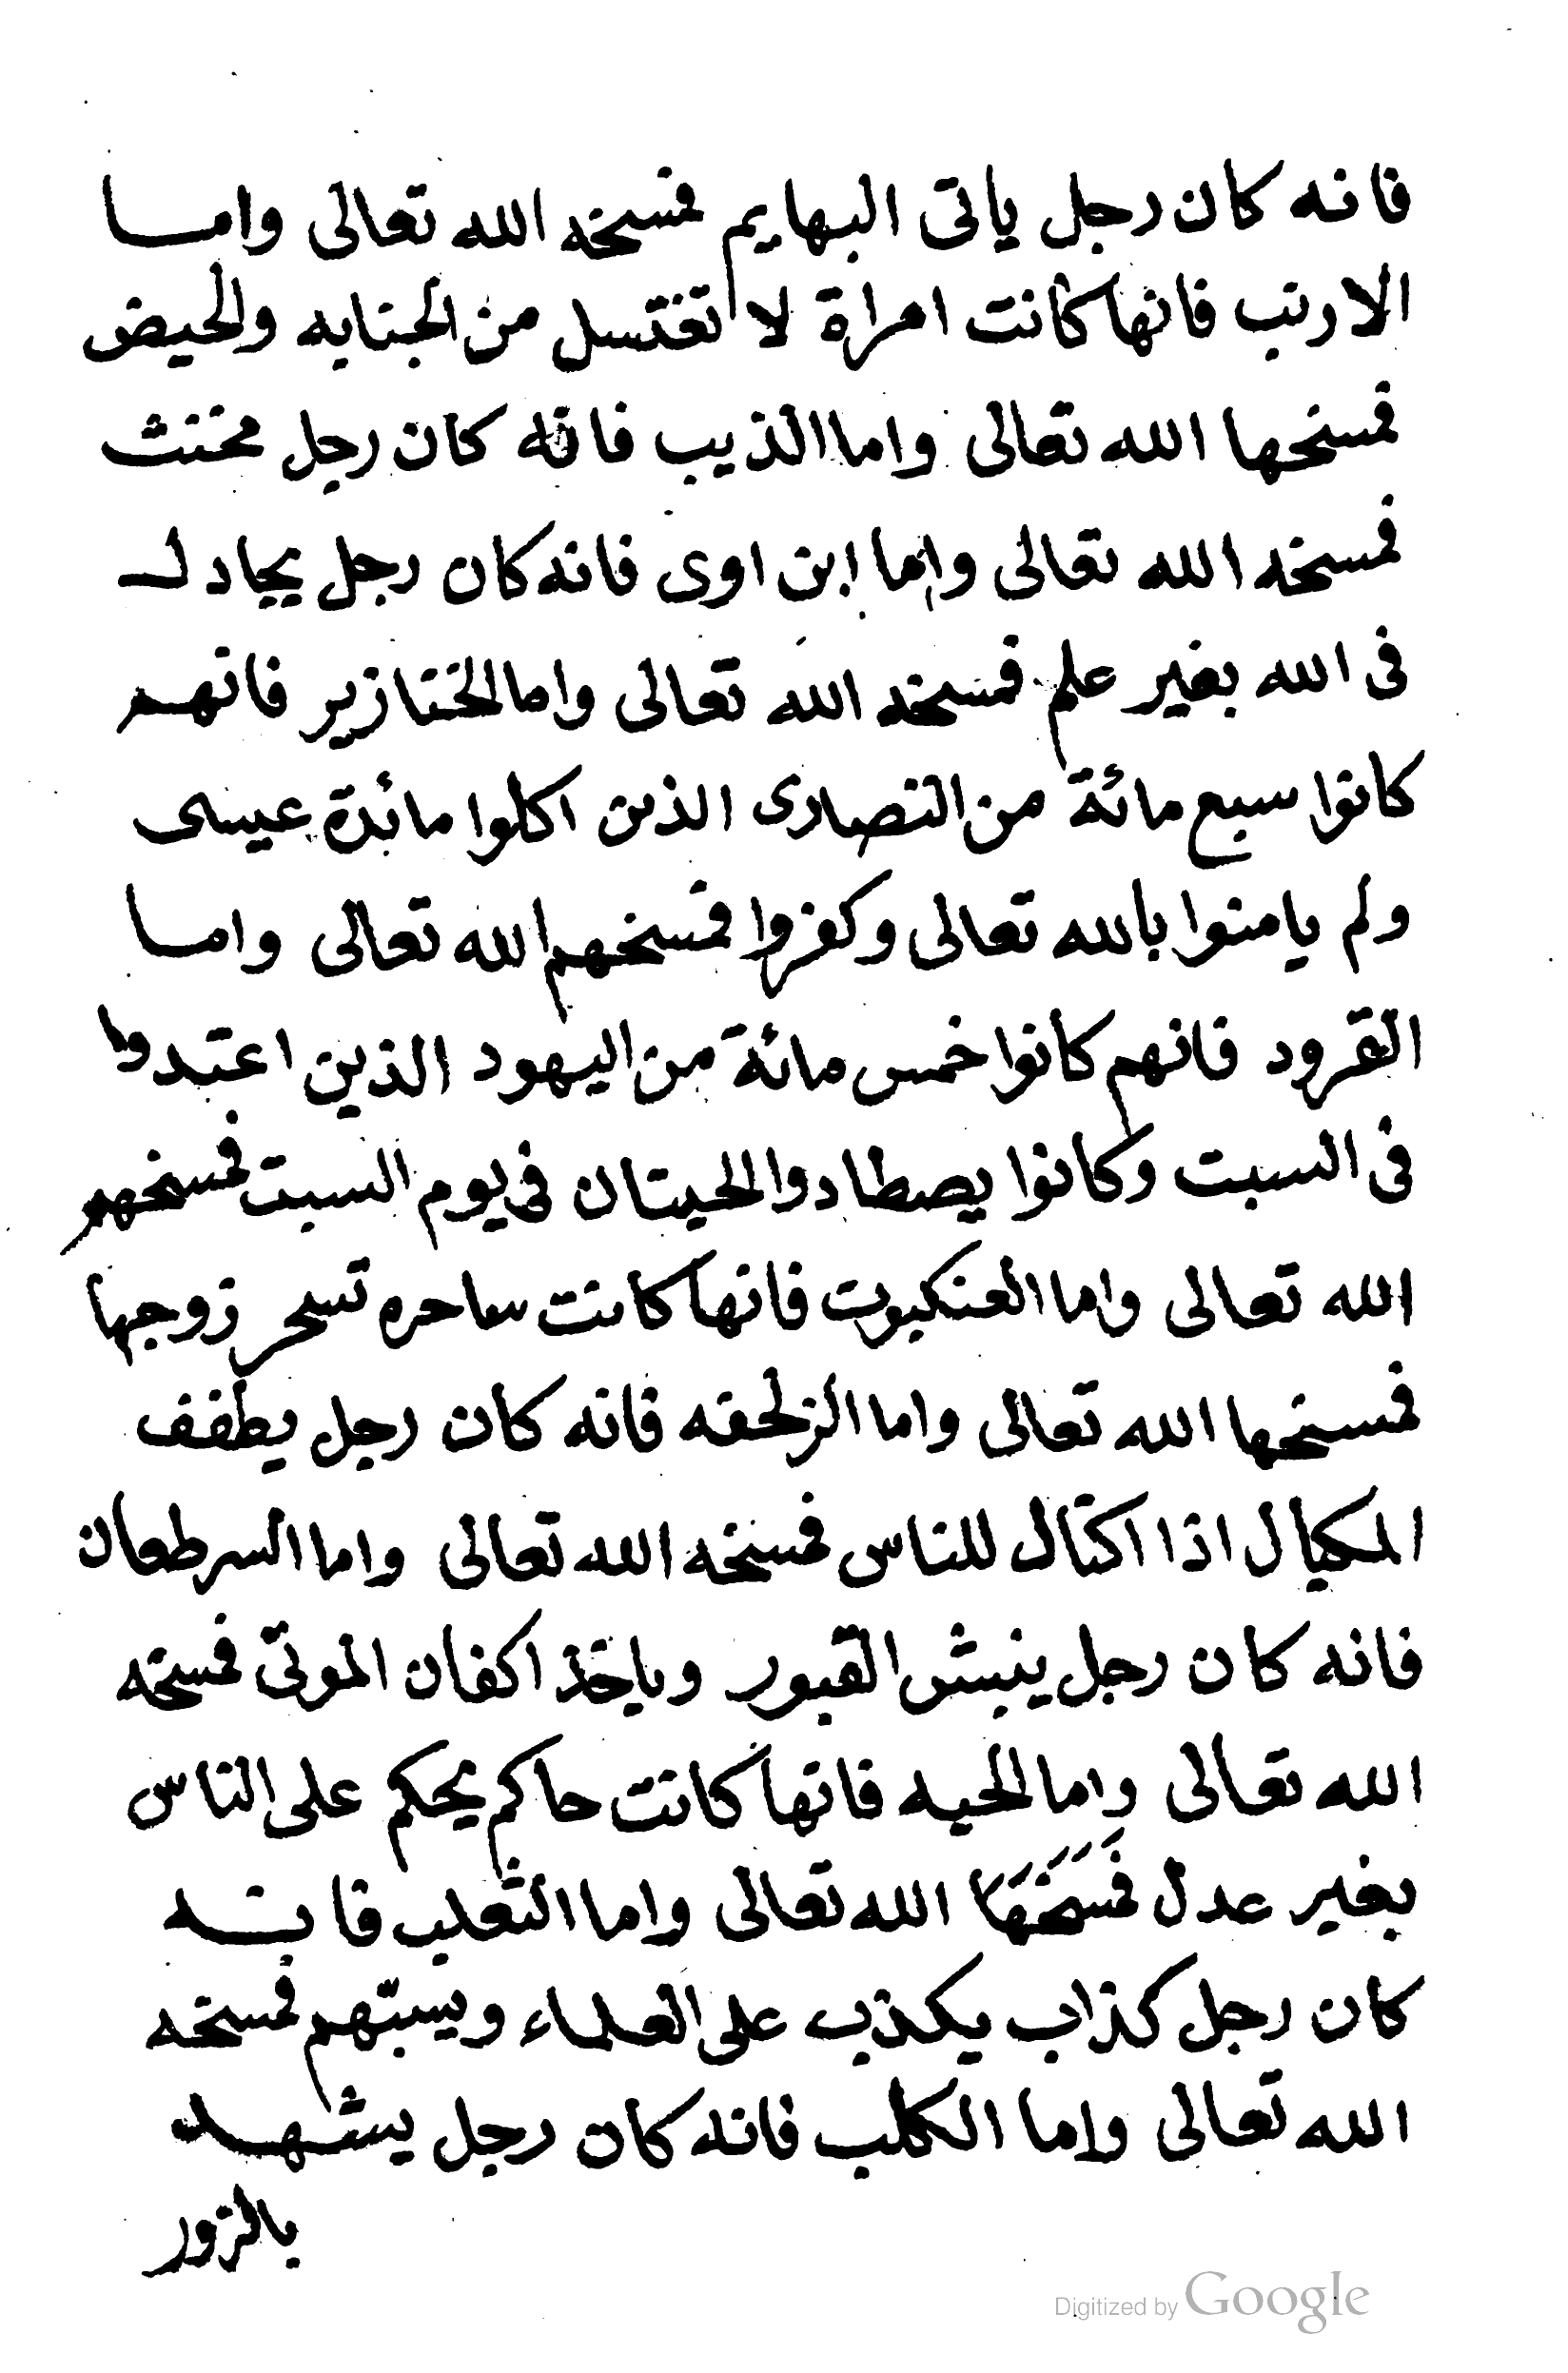 فانه كان رجل ياتى البهايم فمسخه الله تعالى واما
الارنب فانها كانت امراة لا تغتسل من الجنابه والحيض
فمسخها الله تعالى واما الذيب فانه كان رجل مخنث
فمسخه الله تعالى واما ابن اوى فانه كان رجل يجادل
فى الله بغير علم فمسخه الله تعالى واما الخنازير فانهم
كانوا سبع مائة من النصارى الذين اكلوا مائدة عيسى
ولم يامنوا بالله تعالى وكفروا فمسخهم الله تعالى واما
القرود فانهم كانوا خمس مائة من اليهود الذين اعتدوا
فى السبت وكانوا يصطادوا الحيتان فى يوم السبت فمسخهم
الله تعالى واما العنكبوت فانها كانت ساحره تسحر زوجها
فمسخها الله تعالى واما الزلحفه فانه كان رجل يطفف
المكيال اذا اكتال للناس فمسخه الله تعالى واما السرطعان
فانه كان رجل ينبش القبور وياخذ اكفان الموتى فمسخه
الله تعالى واما الحيه فانها كانت حاكم يحكم على الناس
بغير عدل فَمَسَخَهَا الله تعالى واما الثعلب فانه
كان رجل كذاب يكذب على العلماء ويسبّهم فمسخه
الله تعالى واما الكلب فانه كان رجل يشهد
بالزور
Digitized by Google